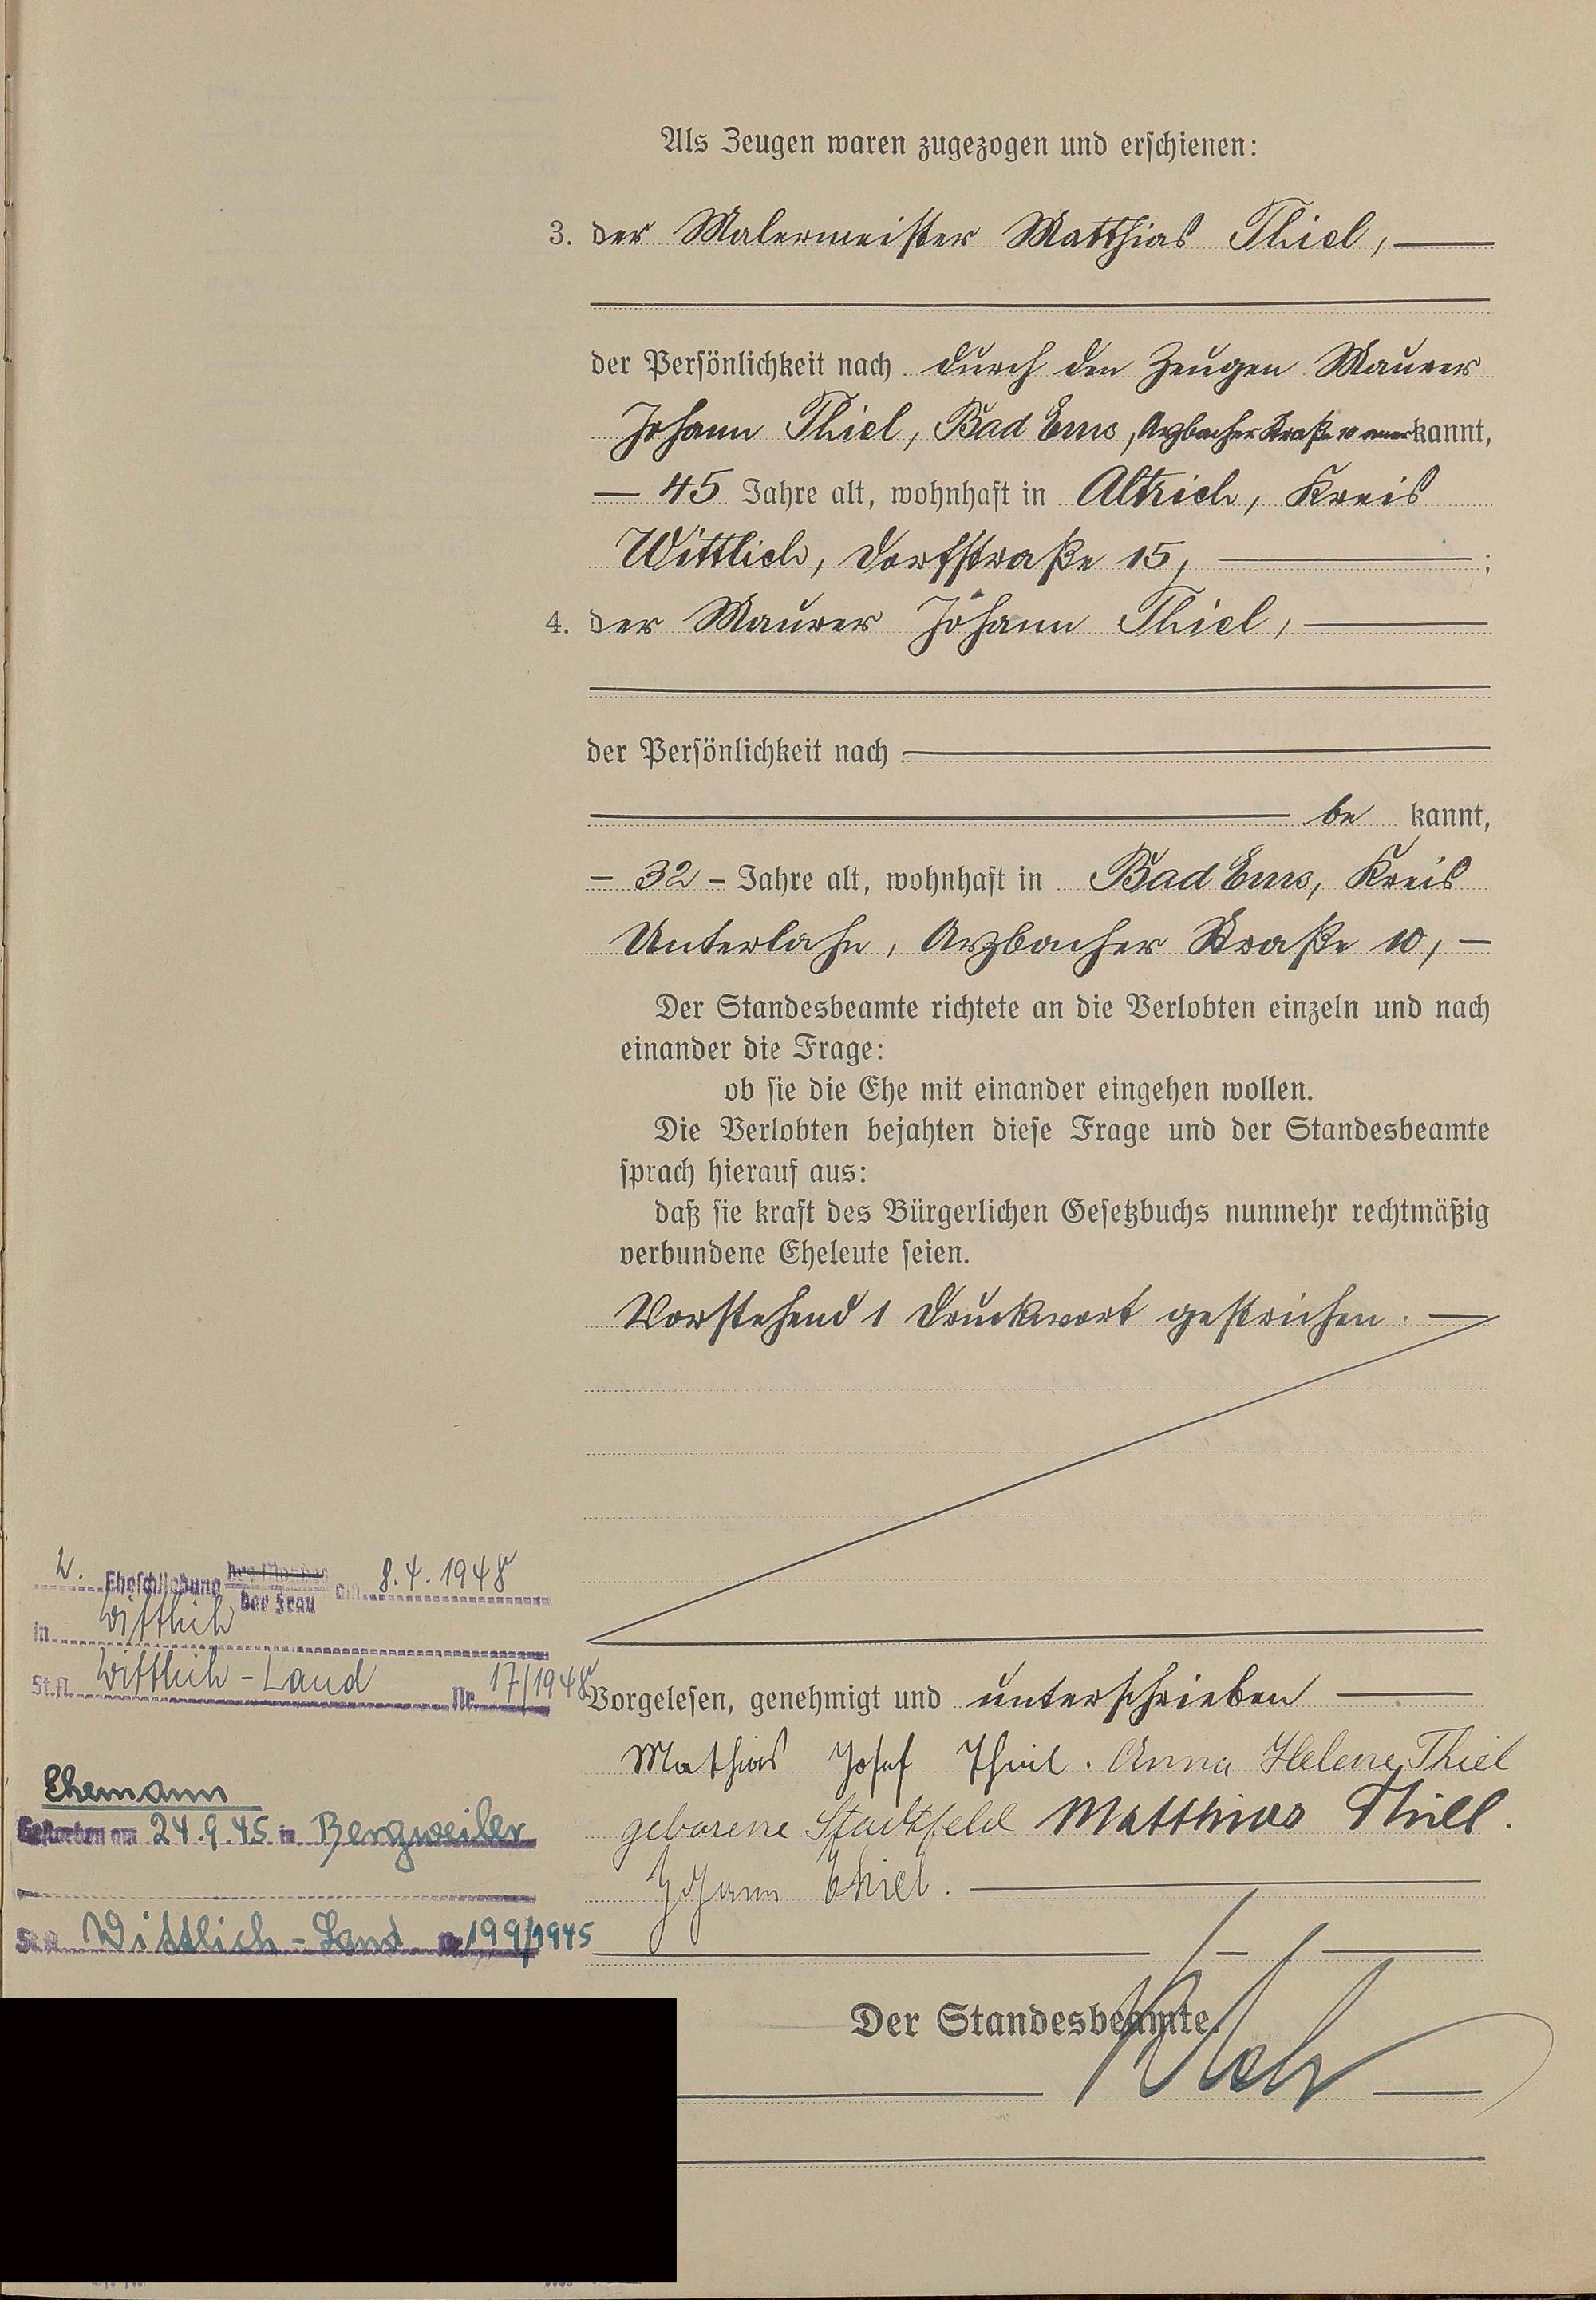 Als Zeugen waren zugezogen und erschienen:
3. der Malermeister Matthias Thiel,
der Persönlichkeit nach durch den Zeugen Maurer
Johann Thiel, Bad Ems, Arzbacher Straße 10 anerkannt,
45 Jahre alt, wohnhaft in Altrich, Kreis
Wittlich, Dorfstraße 15, ;
4. der Maurer Johann Thiel,
der Persönlichkeit nach
be kannt,
32 Jahre alt, wohnhaft in Bad Ems, Kreis
Unterlahn, Arzbacher Straße 10,
Der Standesbeamte richtete an die Verlobten einzeln und nach
einander die Frage:
ob sie die Ehe mit einander eingehen wollen.
Die Verlobten bejahten diese Frage und der Standesbeamte
sprach hierauf aus:
daß sie kraft des Bürgerlichen Gesetzbuchs nunmehr rechtmäßig
verbundene Eheleute seien.
Vorstehend 1 Druckwort gestrichen.
Vorgelesen, genehmigt und unterschrieben
Mathias Josef Thiel. Anna Helene Thiel
geborene Stadtfeld Matthias Thiel.
Johann Thiel.
Der Standesbeamte.
2. Eheschließung des Mannes der Frau am 8.4.1948
in Wittlich
St.A. Wittlich-Land Nr. 17/1948
Ehemann
Gestorben am 24.9.45 in Bergweiler
St.A. Wittlich-Land Nr. 199/1945